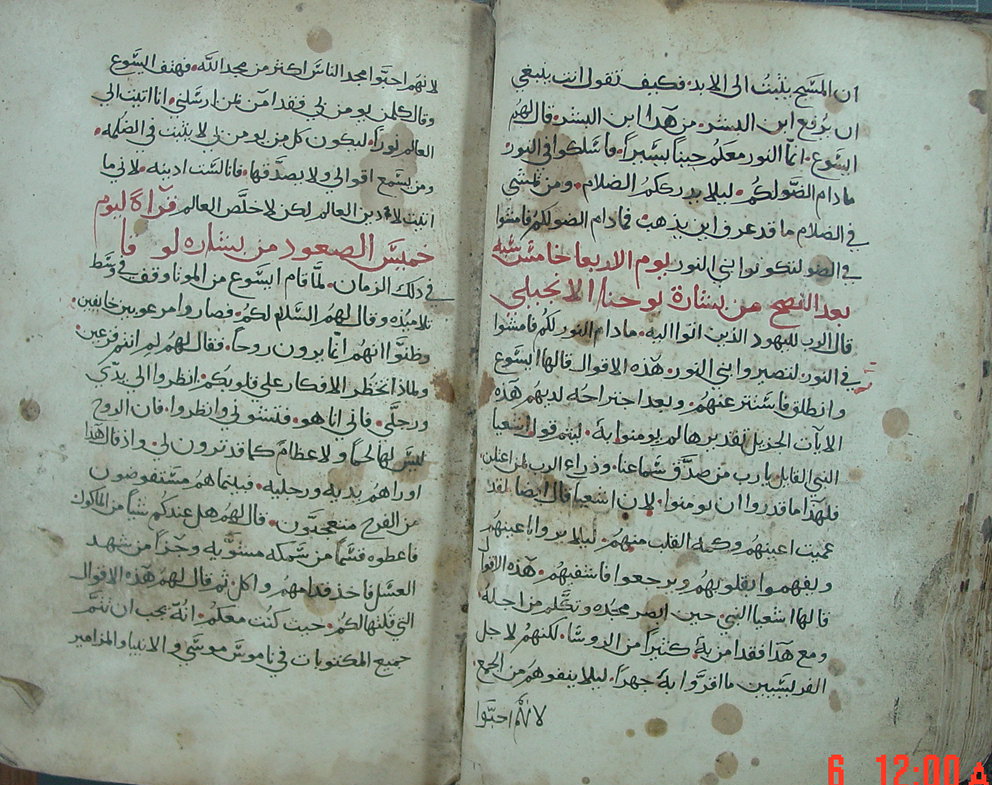 ان المسيح يثبت الى الابد. فكيف تقول انت ينبغي
ان يرفع ابن البشر. من هذا ابن البشر. قال لهم
ايسوع. انما النور معكم حيناً يسيراً. فاسلكوا في النور
مادام الضو لكم. ليلا يدرككم الضلام. ومن يمشي
في الضلام ما قد عرف اين يذهب. فمادام الضو لكم فامنوا
في الضو لتكونوا بني النور يوم الاربعا خامس
بعد الفصح من بشارة يوحنا الانجيلي
قال الرب لليهود الذين اتوا اليه. مادام النور لكم فامنوا
في النور. لتصيروا بني النور. هذه الاقوال قالها ايسوع
وانطلق فاستتر عنهم. وبعد اجتراحه لديهم هذه
الايات الجزيل تقديرها لم يومنوا به. ليتم قول اشعيا
النبي القايل يا رب من صدق سماعنا. وذراع الرب لمن اعلن
فلهذا ما قدروا ان يومنوا. لان اشعيا قال ايضا لقد
عميت اعينهم وكمه القلب منهم. ليلا يروا باعينهم
ويفهموا بقلوبهم ويرجعوا فاشفيهم. هذه الاقوال
قالها اشعيا النبي حين ابصر مجده وتكلم من اجله
ومع هذا فقد امن به كثيراً من الروسا. لكنهم لاجل
الفريسيين ما اقروا به جهراً. ليلا ينفوهم من الجمع
لانهم احبوا
لانهم احبوا مجد الناس اكثر من مجد الله. فهتف ايسوع
وقال كلمن يومن بي فقد امن بمن ارسلني. انا اتيت الى
العالم نوراً. ليكون كل من يومن بي لا يثبت في الضلمه.
ومن يسمع اقوالي ولا يصدقها. فانا لست ادينه. لاني ما
اتيت لادين العالم لكن لاخلص العالم قراة ليوم
خميس الصعود من بشاره لوقا
في ذلك الزمان. لما قام ايسوع من الموتا وقف في وسط
تلاميذه وقال لهم السلام لكم. فصاروا مرعوبين خايفين.
وظنوا انهم انما يرون روحاً. فقال لهم لم انتم فزعين.
ولماذا تخطر الافكار على قلوبكم. انظروا الى يدي
ورجلي. فاني انا هو. فتشوني وانظروا. فان الروح
ليس لها لحماً ولا عظاماً كما قد ترون لي. واذ قال هذا
اوراهم يديه ورجليه. فبينما هم مستفوضون
من الفرح متعجبون. قال لهم هل عندكم شياً من الماكول
فاعطوه قسماً من سمكه مشويه وجزاً من شهد
العسل فاخذ قدامهم واكل. ثم قال لهم هذه الاقوال
التي قلتها لكم. حيث كنت معكم. انه يجب ان تتم
جميع المكتوبات في ناموس موسى والانبيا والمزامير
6 12:00 A